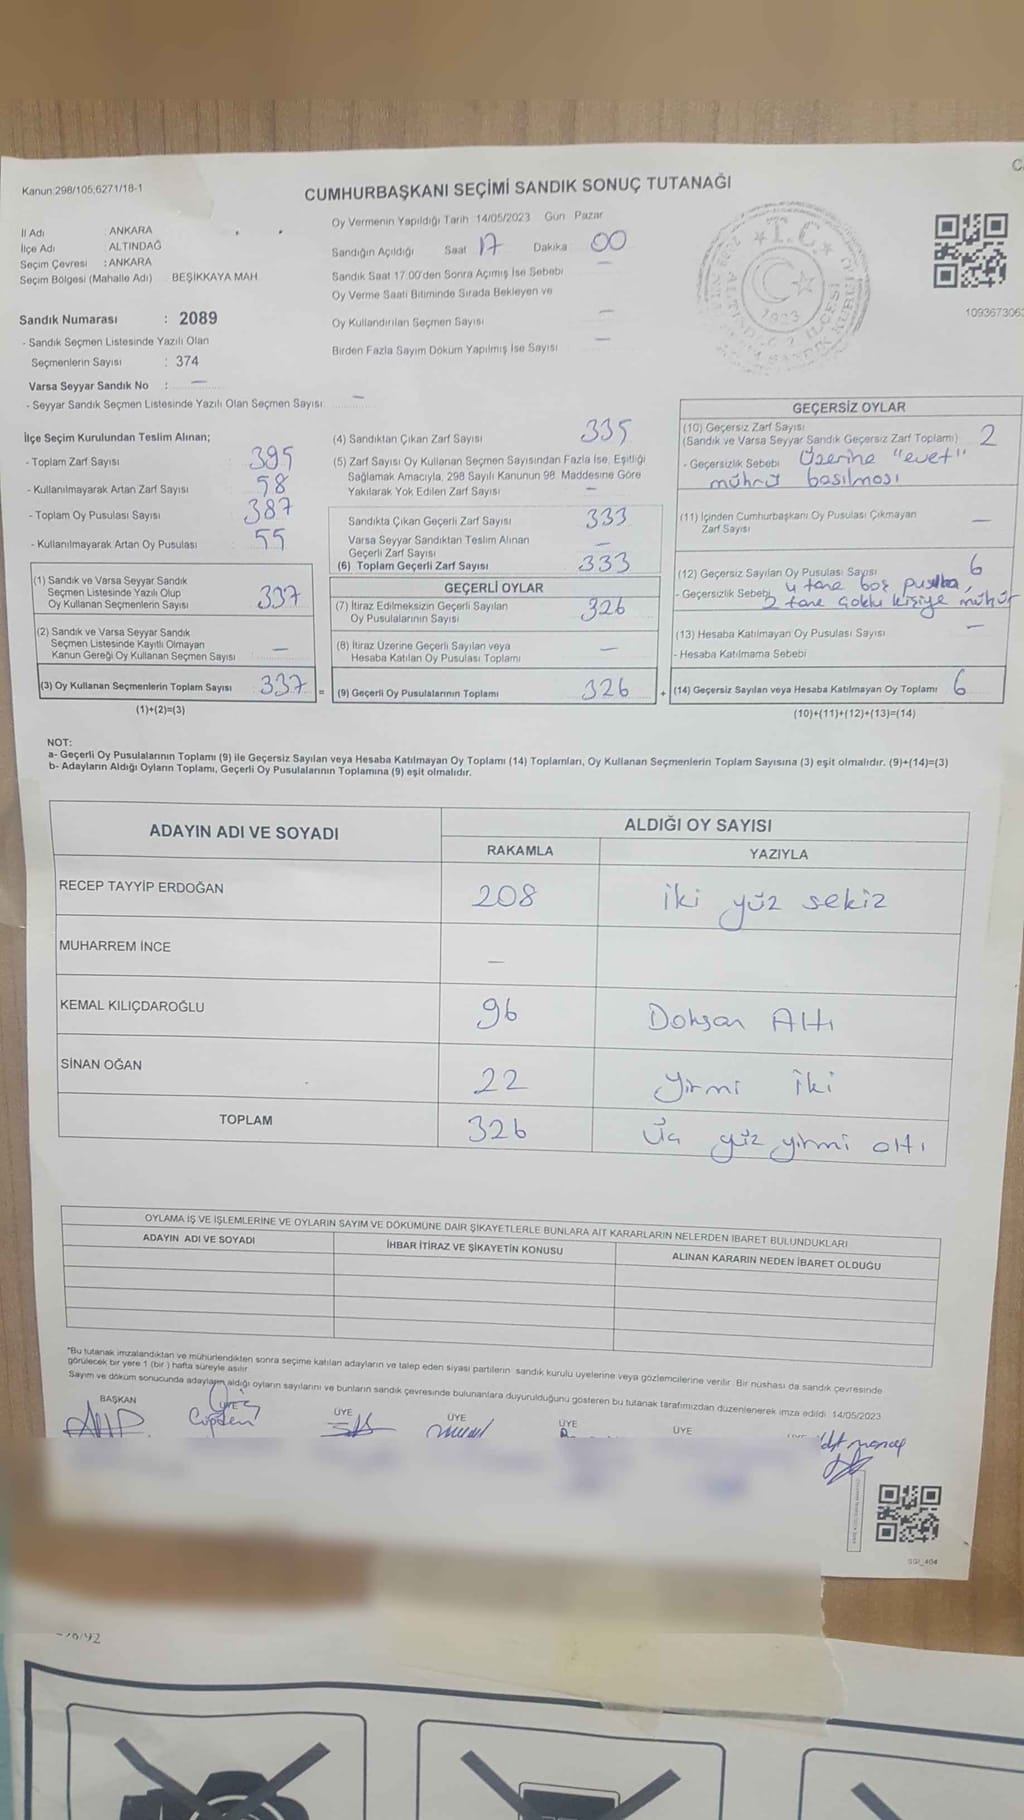 Kanun:298/105;6271/18-1
CUMHURBAŞKANI SEÇİMİ SANDIK SONUÇ TUTANAĞI
İl Adı : ANKARA
İlçe Adı : ALTINDAĞ
Seçim Çevresi : ANKARA
Seçim Bölgesi (Mahalle Adı) BEŞİKKAYA MAH.
Sandık Numarası : 2089
- Sandık Seçmen Listesinde Yazılı Olan
Seçmenlerin Sayısı : 374
Varsa Seyyar Sandık No : —
- Seyyar Sandık Seçmen Listesinde Yazılı Olan Seçmen Sayısı: —
Oy Vermenin Yapıldığı Tarih 14/05/2023 Gün Pazar
Sandığın Açıldığı Saat 17 Dakika 00
Sandık Saat 17.00'den Sonra Açılmış İse Sebebi —
Oy Verme Saati Bitiminde Sırada Bekleyen ve
Oy Kullandırılan Seçmen Sayısı —
Birden Fazla Sayım Döküm Yapılmış İse Sayısı —
T.C.
1923
109367306
İlçe Seçim Kurulundan Teslim Alınan;
- Toplam Zarf Sayısı 395
- Kullanılmayarak Artan Zarf Sayısı 58
- Toplam Oy Pusulası Sayısı 387
- Kullanılmayarak Artan Oy Pusulası 55
(1) Sandık ve Varsa Seyyar Sandık
Seçmen Listesinde Yazılı Olup
Oy Kullanan Seçmenlerin Sayısı 337
(2) Sandık ve Varsa Seyyar Sandık
Seçmen Listesinde Kayıtlı Olmayan
Kanun Gereği Oy Kullanan Seçmen Sayısı —
(3) Oy Kullanan Seçmenlerin Toplam Sayısı 337 =
(1)+(2)=(3)
(4) Sandıktan Çıkan Zarf Sayısı 335
(5) Zarf Sayısı Oy Kullanan Seçmen Sayısından Fazla İse, Eşitliği
Sağlamak Amacıyla, 298 Sayılı Kanunun 98. Maddesine Göre
Yakılarak Yok Edilen Zarf Sayısı —
Sandıkta Çıkan Geçerli Zarf Sayısı 333
Varsa Seyyar Sandıktan Teslim Alınan
Geçerli Zarf Sayısı —
(6) Toplam Geçerli Zarf Sayısı 333
GEÇERLİ OYLAR
(7) İtiraz Edilmeksizin Geçerli Sayılan
Oy Pusulalarının Sayısı 326
(8) İtiraz Üzerine Geçerli Sayılan veya
Hesaba Katılan Oy Pusulası Toplamı —
(9) Geçerli Oy Pusulalarının Toplamı 326 +
GEÇERSİZ OYLAR
(10) Geçersiz Zarf Sayısı
(Sandık ve Varsa Seyyar Sandık Geçersiz Zarf Toplamı) 2
- Geçersizlik Sebebi Üzerine "evet"
mührü basılması
(11) İçinden Cumhurbaşkanı Oy Pusulası Çıkmayan
Zarf Sayısı —
(12) Geçersiz Sayılan Oy Pusulası Sayısı 6
- Geçersizlik Sebebi 4 tane boş pusulba,
2 tane çoklu kişiye mühür
(13) Hesaba Katılmayan Oy Pusulası Sayısı —
- Hesaba Katılmama Sebebi
(14) Geçersiz Sayılan veya Hesaba Katılmayan Oy Toplamı 6
(10)+(11)+(12)+(13)=(14)
NOT:
a- Geçerli Oy Pusulalarının Toplamı (9) ile Geçersiz Sayılan veya Hesaba Katılmayan Oy Toplamı (14) Toplamları, Oy Kullanan Seçmenlerin Toplam Sayısına (3) eşit olmalıdır. (9)+(14)=(3)
b- Adayların Aldığı Oyların Toplamı, Geçerli Oy Pusulalarının Toplamına (9) eşit olmalıdır.
ADAYIN ADI VE SOYADI ALDIĞI OY SAYISI
RAKAMLA YAZIYLA
RECEP TAYYİP ERDOĞAN 208 iki yüz sekiz
MUHARREM İNCE —
KEMAL KILIÇDAROĞLU 96 Doksan Altı
SİNAN OĞAN 22 Yirmi İki
TOPLAM 326 Üç yüz yirmi altı
OYLAMA İŞ VE İŞLEMLERİNE VE OYLARIN SAYIM VE DÖKÜMÜNE DAİR ŞİKAYETLERLE BUNLARA AİT KARARLARIN NELERDEN İBARET BULUNDUKLARI
ADAYIN ADI VE SOYADI İHBAR İTİRAZ VE ŞİKAYETİN KONUSU ALINAN KARARIN NEDEN İBARET OLDUĞU
"Bu tutanak imzalandıktan ve mühürlendikten sonra seçime katılan adayların ve talep eden siyasi partilerin sandık kurulu üyelerine veya gözlemcilerine verilir. Bir nüshası da sandık çevresinde
görülecek bir yere 1 (bir) hafta süreyle asılır.
Sayım ve döküm sonucunda adayların aldığı oyların sayılarını ve bunların sandık çevresinde bulunanlara duyurulduğunu gösteren bu tutanak tarafımızdan düzenlenerek imza edildi. 14/05/2023
BAŞKAN ÜYE ÜYE ÜYE ÜYE ÜYE